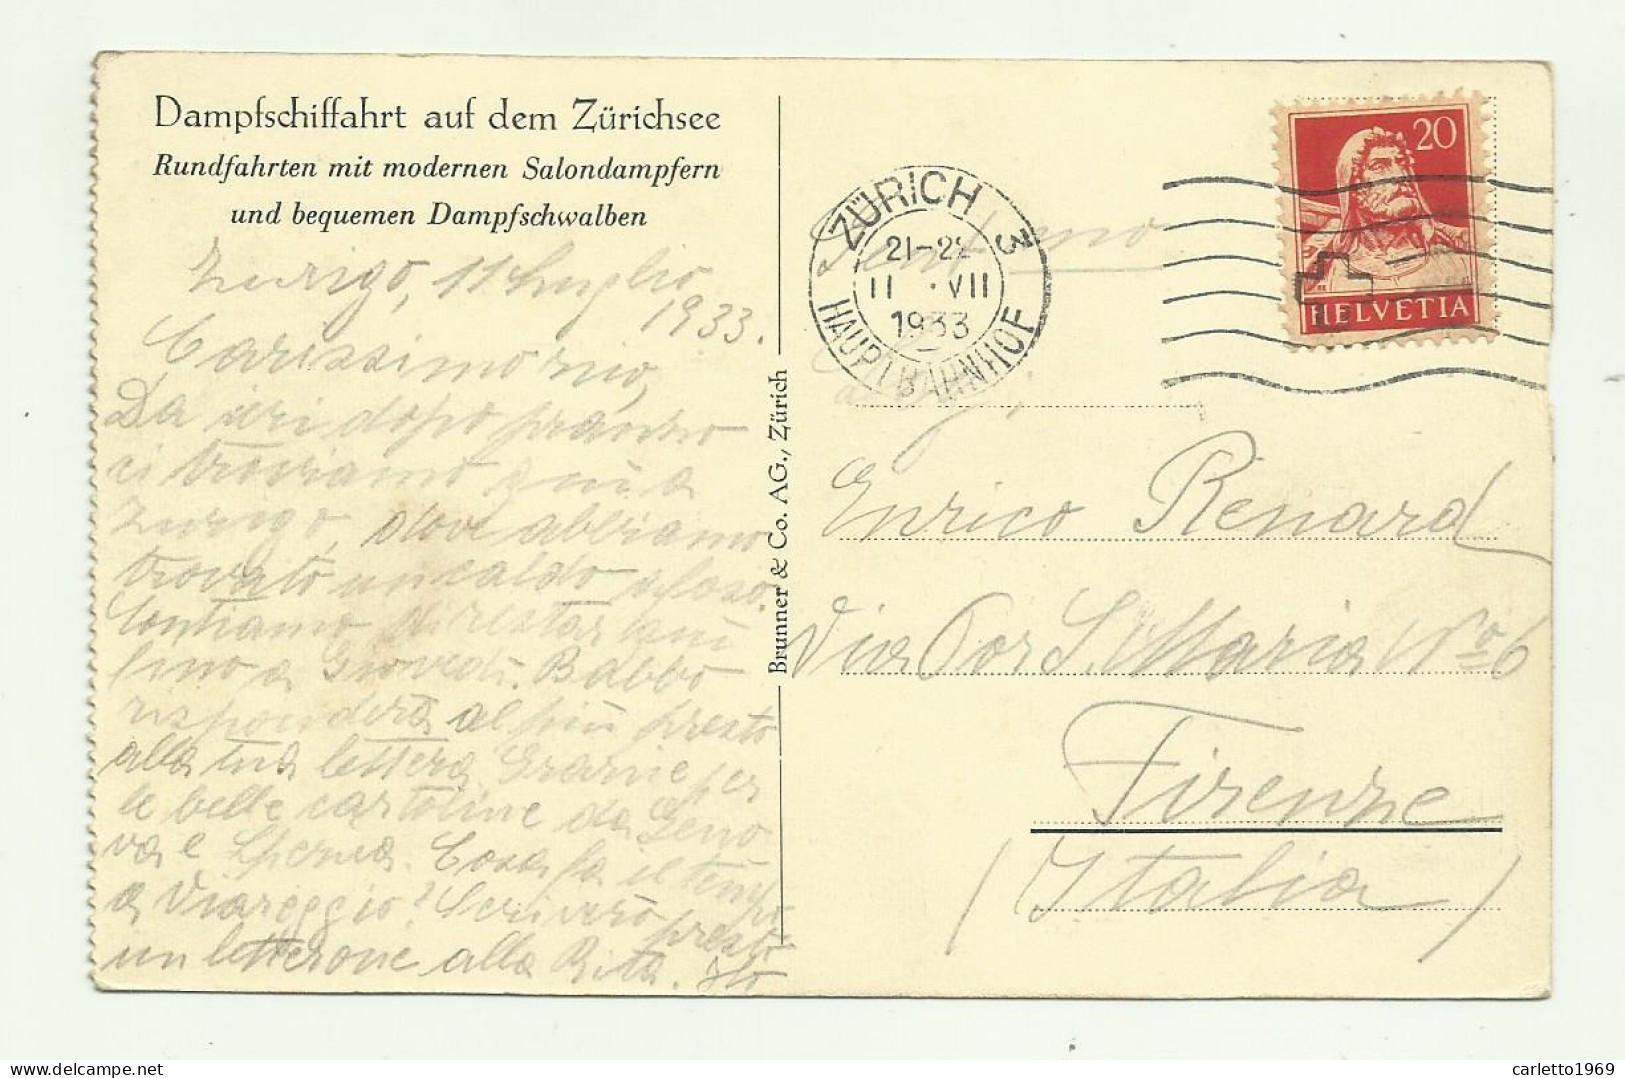 Dampfschiffahrt auf dem Zürichsee
Rundfahrten mit modernen Salondampfern
und bequemen Dampfschwalben
Zurigo, 11 Luglio
1933.
Carissimo mio,
Da ieri dopo pranzo
ci troviamo qui a
Zurigo, dove abbiamo
trovato un caldo afoso.
Contiamo di restar qui
fino a Giovedì. Babbo
risponderà al più presto
alla tua lettera. Grazie per
le belle cartoline da Geno
va e Spezia. Cosa fa il tempo
a Viareggio? Scriverò presto
un letterone alla Rita.
Brunner & Co. AG., Zürich
ZÜRICH 3
21-22
11.VII
1933
HAUPTBAHNHOF
20
HELVETIA
Enrico Renard
Via Por S. Maria No 6
Firenze
(Italia)
carletto1969